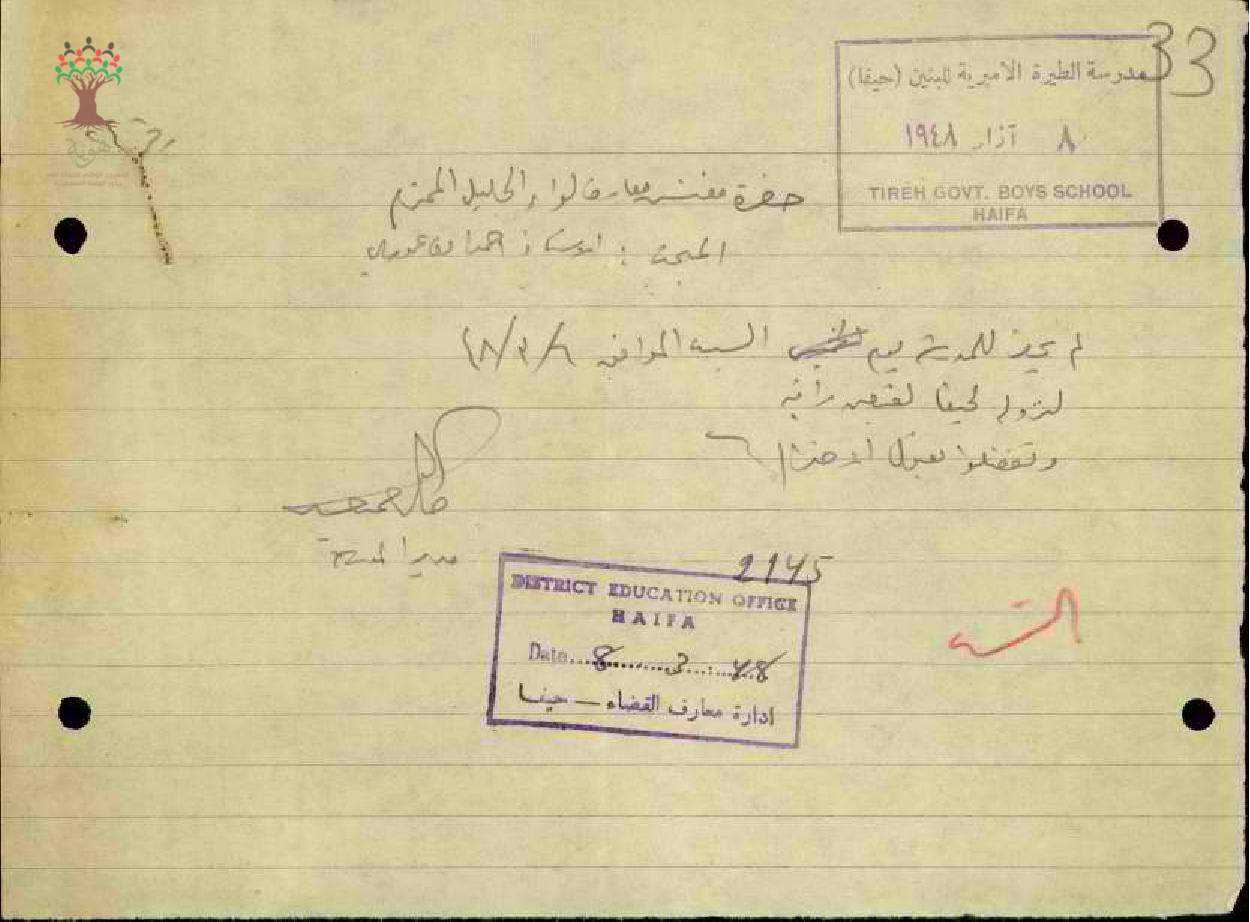 33
مدرسة الطيرة الاميرية للبنين (حيفا)
٨ آذار ١٩٤٨
TIREH GOVT. BOYS SCHOOL
HAIFA
هوية
حضرة مفتش معارف لواء الجليل المحترم
المبحث : الاستاذ احمد
لم يحضر للمدرسة يوم السبت الموافق
لنزوله لحيفا لقبض راتبه
وتفضلوا بقبول الاحترام
مدير المدرسة
2145
DISTRICT EDUCATION OFFICE
HAIFA
Date 8 3 48
ادارة معارف القضاء — حيفا